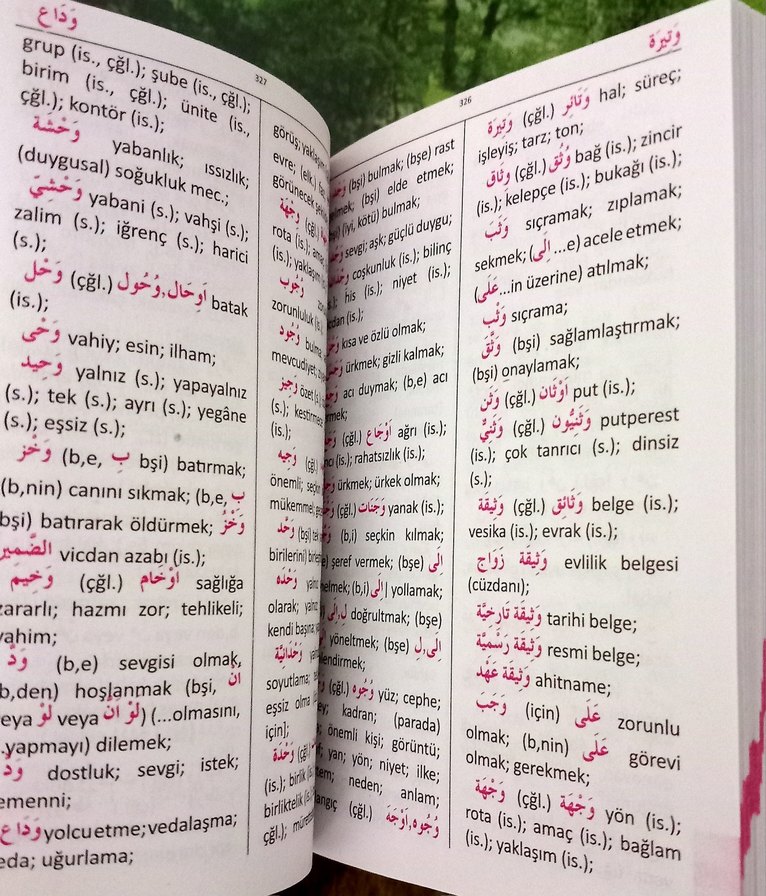 وَتِيرَة
326
وَتِيرَة (çğl.) وَتَائِر hal; süreç;
işleyiş; tarz; ton;
وِثَاق (çğl.) وُثُق bağ (is.); zincir
(is.); kelepçe (is.); bukağı (is.);
وَثَبَ sıçramak; zıplamak;
sekmek; (اِلَى ...e) acele etmek;
(عَلَى ...in üzerine) atılmak;
وَثْب sıçrama;
وَثَّقَ (bşi) sağlamlaştırmak;
(bşi) onaylamak;
وَثَن (çğl.) اَوْثَان put (is.);
وَثَنِيّ (çğl.) وَثَنِيُّون putperest
(is.); çok tanrıcı (s.); dinsiz
(s.);
وَثِيقَة (çğl.) وَثَائِق belge (is.);
vesika (is.); evrak (is.);
وَثِيقَة زَوَاج evlilik belgesi
(cüzdanı);
وَثِيقَة تَارِخِيَّة tarihi belge;
وَثِيقَة رَسْمِيَّة resmi belge;
وَثِيقَة عَهْد ahitname;
وَجَبَ (için) عَلَى zorunlu
olmak; (b,nin) عَلَى görevi
olmak; gerekmek;
وَجْهَة (çğl.) وَجْهَة yön (is.);
rota (is.); amaç (is.); bağlam
(is.); yaklaşım (is.);
(bşi) bulmak; (bşe) rast
(bşi) elde etmek;
(iyi, kötü) bulmak;
sevgi; aşk; güçlü duygu;
coşkunluk (is.); bilinç
his (is.); niyet (is.);
kısa ve özlü olmak;
ürkmek; gizli kalmak;
acı duymak; (b,e) acı
(çğl.) اَوْجَاع ağrı (is.);
(is.); rahatsızlık (is.);
ürkmek; ürkek olmak;
(çğl.) وَجَنَات yanak (is.);
(b,i) seçkin kılmak;
şeref vermek; (bşe) اِلَى
(b,i) اِلَى yollamak;
لِ, اِلَى doğrultmak; (bşe)
اِلَى, لِ yöneltmek; (bşe)
(çğl.) وُجُوه yüz; cephe;
kadran; (parada)
önemli kişi; görüntü;
yan; yön; niyet; ilke;
neden; anlam;
(çğl.) وُجُوه, اَوْجَهَ
وَدَاع
327
görüş;
evre; (elk.)
görünecek
وِجْهَة (çğl.)
rota (is.);
(is.);
وُجُوب
zorunluluk
وُجُود
mevcudiyet;
وَجِيز özet
(s.);
(is.);
وَجِيه (çğl.)
önemli;
mükemmel;
وَحْد (bşi)
birilerini)
وَحْدَه
olarak;
kendi başına;
وَحْدَانِيَّة
soyutlama;
eşsiz olma
için];
وَحْدَة (çğl.)
(is.); birlik
birliktelik
çğl.);
grup (is., çğl.); şube (is., çğl.);
birim (is., çğl.); ünite (is.,
çğl.); kontör (is.);
وَحْشَة yabanlık; ıssızlık;
(duygusal) soğukluk mec.;
وَحْشِيّ yabani (s.); vahşi (s.);
zalim (s.); iğrenç (s.); harici
(s.);
وَحْل (çğl.) اَوْحَال, وُحُول batak
(is.);
وَحْى vahiy; esin; ilham;
وَحِيد yalnız (s.); yapayalnız
(s.); tek (s.); ayrı (s.); yegâne
(s.); eşsiz (s.);
وَخَزَ (b,e, بِ bşi) batırmak;
(b,nin) canını sıkmak; (b,e, بِ
bşi) batırarak öldürmek; وَخْزُ
الضَّمِيرِ vicdan azabı (is.);
وَخِيم (çğl.) اَوْخَام sağlığa
zararlı; hazmı zor; tehlikeli;
vahim;
وَدَّ (b,e) sevgisi olmak,
b,den) hoşlanmak (bşi, اَنْ
veya لَوْ veya لَوْ اَنْ) (...olmasını,
..yapmayı) dilemek;
وَدّ dostluk; sevgi; istek;
temenni;
وَدَاع yolcu etme; vedalaşma;
veda; uğurlama;